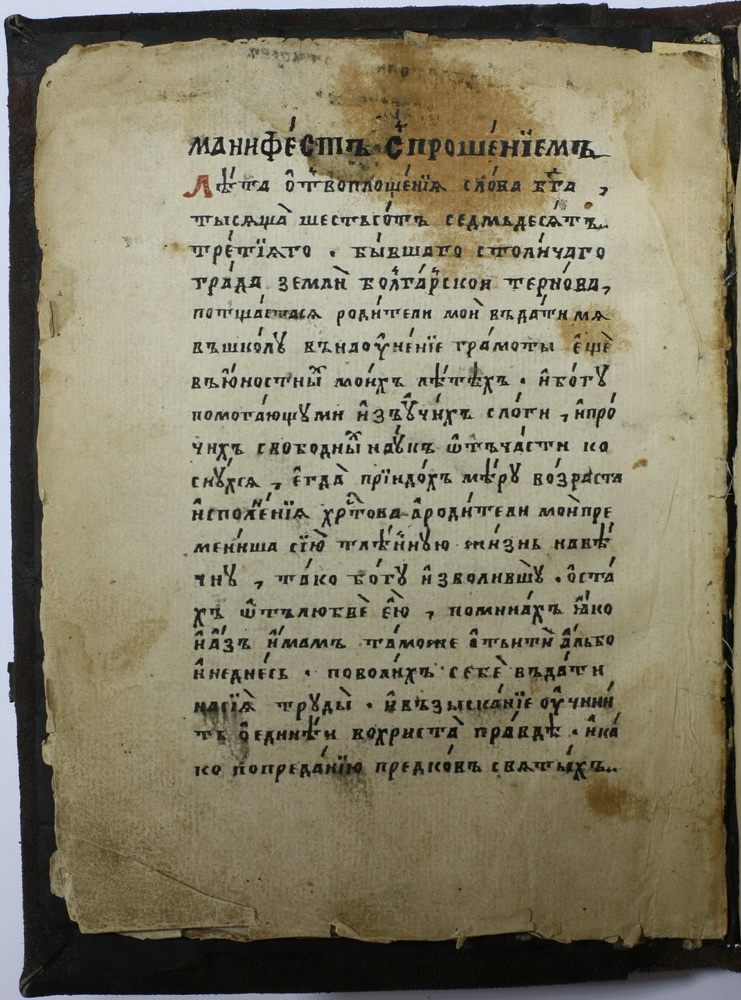 МАНИФЕ́СТЪ С̾ПРОШЕ́НЇЕМЪ
Лѣ́та ѿвоплоще́нїѧ сло́ва бг҃а ,
тысѧща̀ шестьсо́тъ седмьдесѧ́тъ
тре́тїѧго . бы́вшаго столи́чаго
гра́да земли̏ болга́рской терно́ва,
потща́стасѧ роди́тели мои̏ въда́ти мѧ
въшко́лꙋ въндоу҆че́нїе гра́моты є҆ще̏
въю҆́ностны̑ мои́хъ лѣ́тѣхъ . и҆бо́гꙋ
помога́ющꙋми и҆зъꙋ҆чи́хъ сло́ги , и҆про́
чихъ свобо́дны̑ нау́къ ѿъча́сти ко
снꙋ́хсѧ , є҆гда̀ прїидо́хъ мѣ́рꙋ во́зраста
и҆сполне́нїѧ хрⷭ҇това а҆роди́тели мои̏ пре
мени́ша сїю̏ тлѣ́нную жи́знь навѣ́
чнꙋ , та́ко бо́гꙋ и҆зво́лившꙋ . ѡ҆ста́
хъ ѿълюбве̏ є҆ю̏ , помина́хъ ꙗ҆́ко
и҆а҆́зъ и҆́мамъ та́може ѿъити̏ а҆́лыбо
и҆недне́сь . поволи́хъ себе̏ въда́ти
насїѧ̏ трꙋды̏ . и҆възыска́нїе оу҆чини́
ть ѡ҆едине́и вохриста̏ пра́вдѣ . и҆ка́
ко попреда́нїю пре́дковъ свѧты́хъ